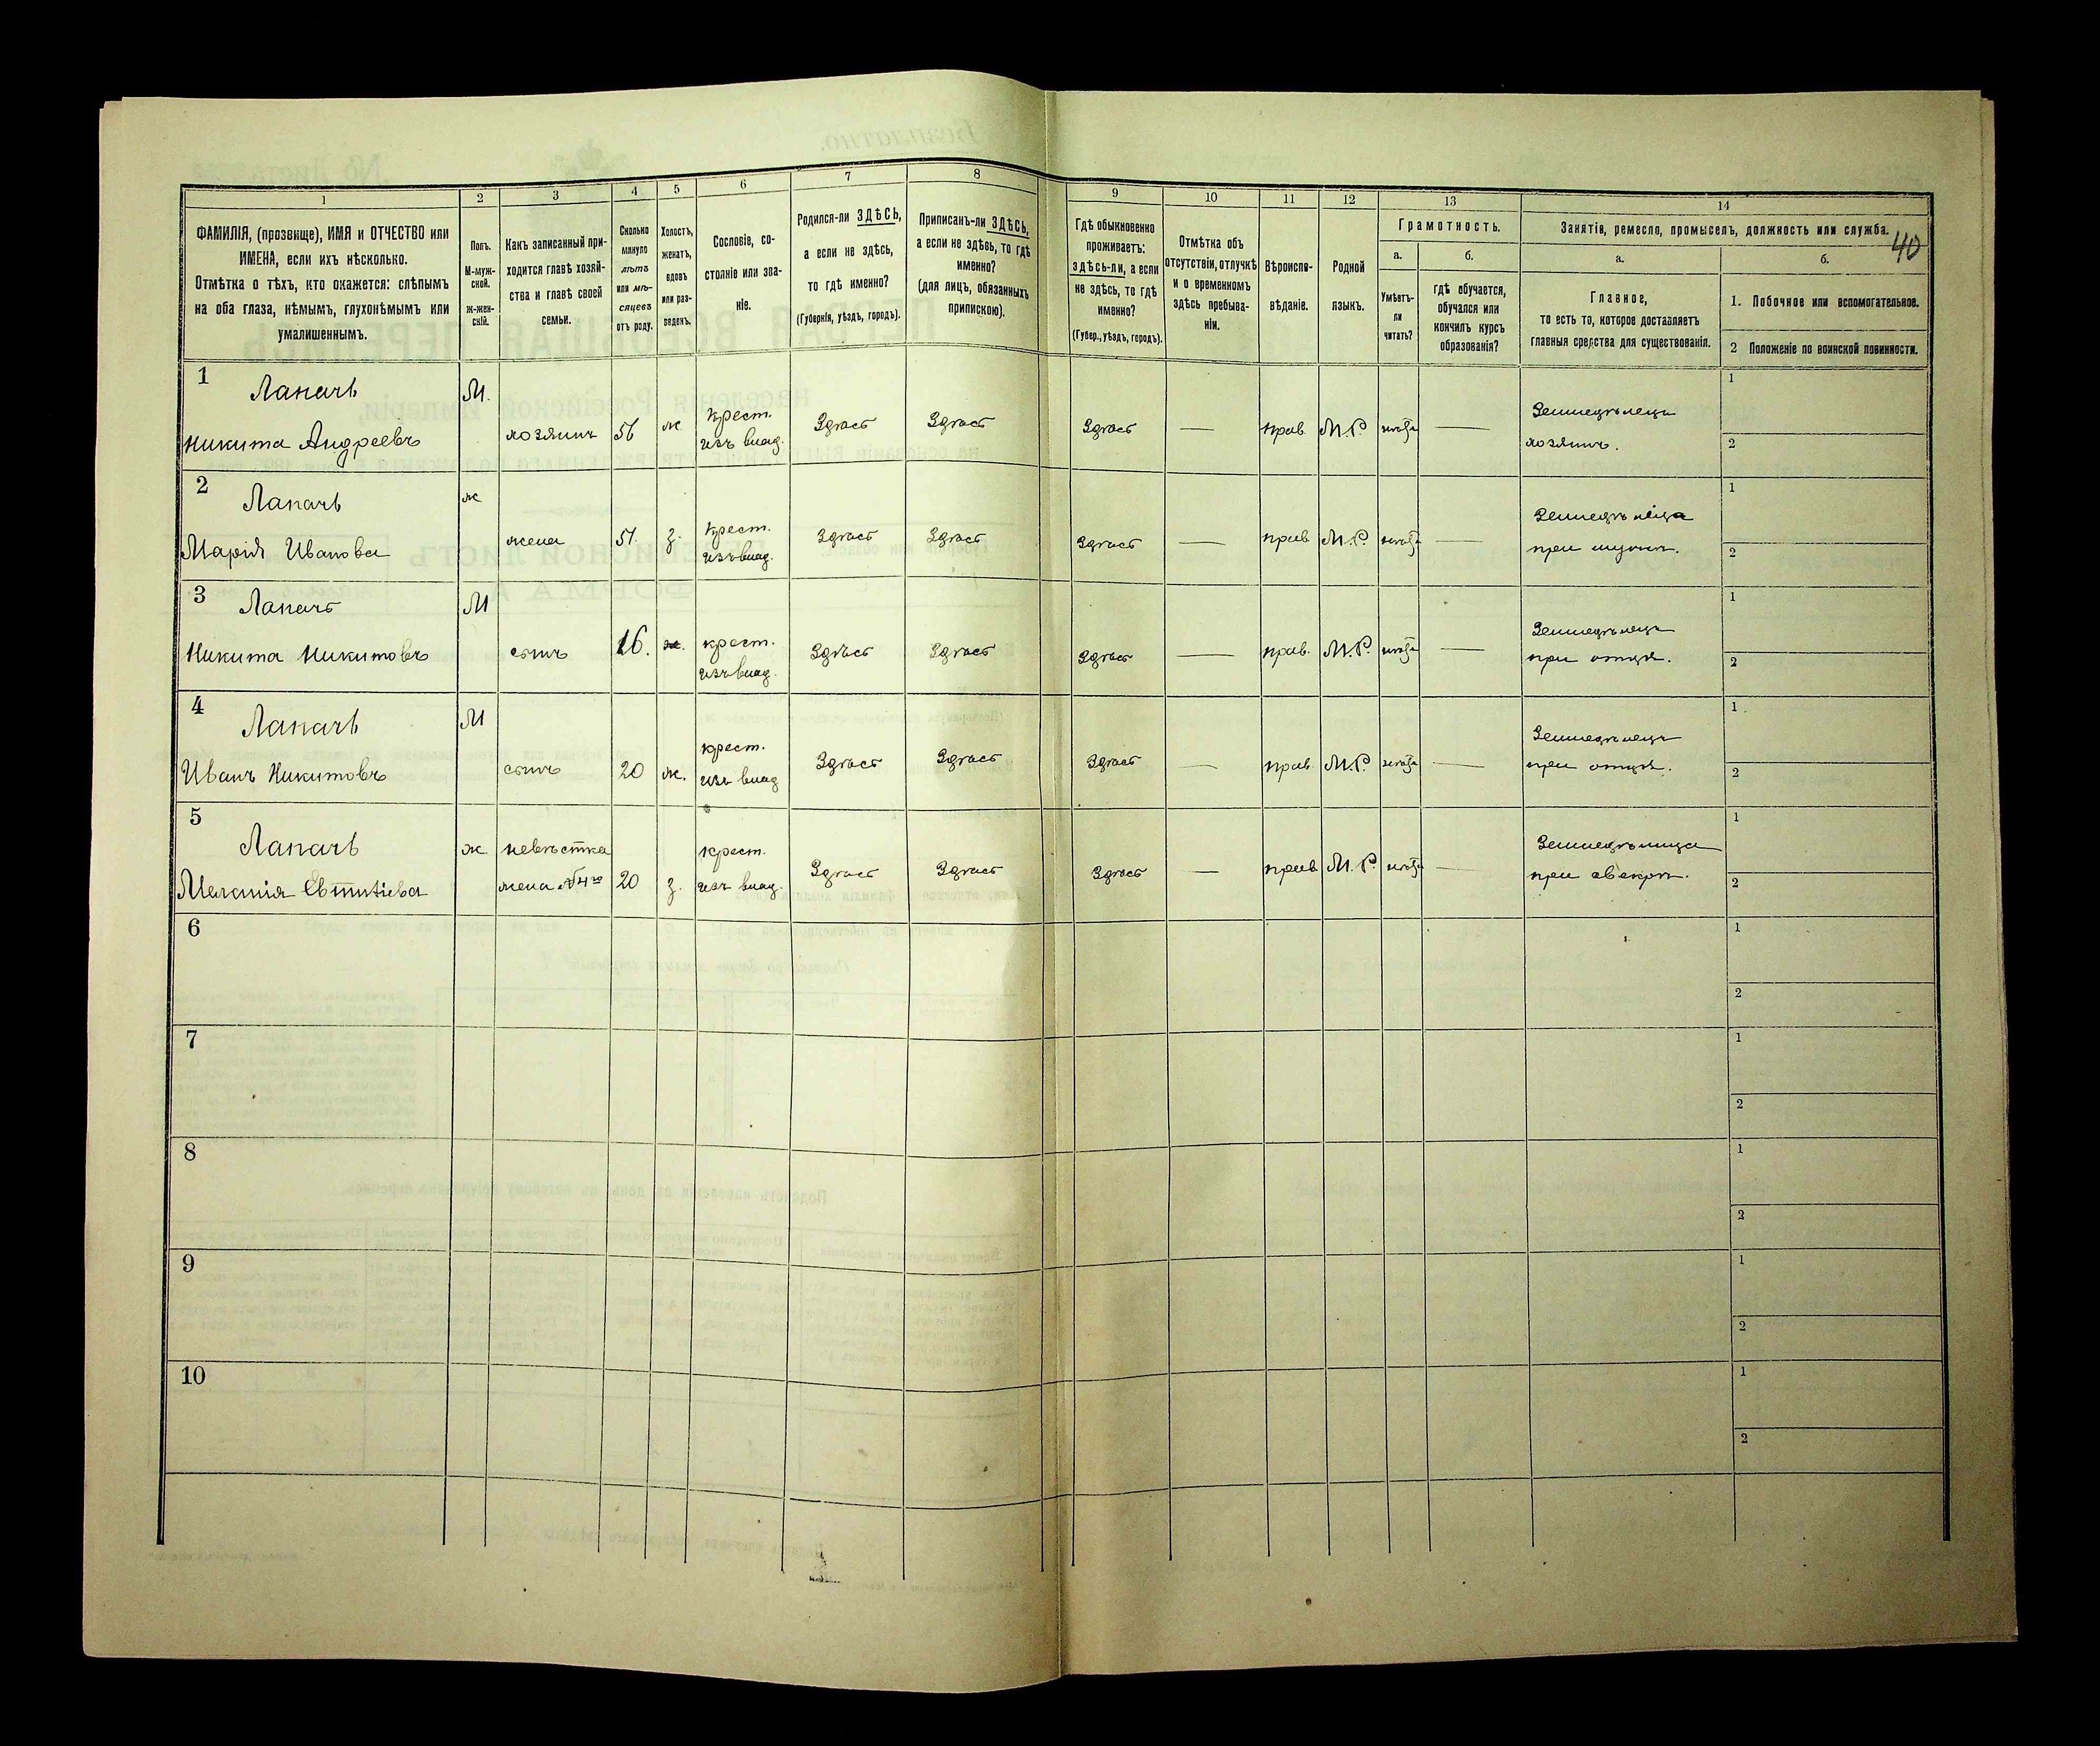 40
1 2 3 4 5 6 7 8 9 10 11 12 13 14
ФАМИЛІЯ, (прозвище), ИМЯ и ОТЧЕСТВО или
ИМЕНА, если ихъ нѣсколько.
Отмѣтка о тѣхъ, кто окажется: слѣпымъ
на оба глаза, нѣмымъ, глухонѣмымъ или
умалишеннымъ.
Полъ.
М-муж-
ской.
Ж-жен-
скій.
Какъ записанный при-
ходится главѣ хозяй-
ства и главѣ своей
семьи.
Сколько
минуло
лѣтъ
или мѣ-
сяцевъ
отъ роду.
Холостъ,
женатъ,
вдовъ
или раз-
веденъ.
Сословіе, со-
стояніе или зва-
ніе.
Родился-ли ЗДѢСЬ,
а если не здѣсь,
то гдѣ именно?
(Губернія, уѣздъ, городъ).
Приписанъ-ли ЗДѢСЬ,
а если не здѣсь, то гдѣ
именно?
(для лицъ, обязанныхъ
припискою).
Гдѣ обыкновенно
проживаетъ:
здѣсь-ли, а если
не здѣсь, то гдѣ
именно?
(Губер., уѣздъ, городъ).
Отмѣтка объ
отсутствіи, отлучкѣ
и о временномъ
здѣсь пребыва-
ніи.
Вѣроиспо-
вѣданіе.
Родной
языкъ.
Грамотность.
а.
Умѣетъ-
ли
читать?
б.
гдѣ обучается,
обучался или
кончилъ курсъ
образованія?
Занятіе, ремесло, промыселъ, должность или служба.
а.
Главное,
то есть то, которое доставляетъ
главныя средства для существованія.
б.
1. Побочное или вспомогательное.
2 Положеніе по воинской повинности.
1 Лапачъ М. крест. Земледѣлецъ 1
Никита Андреевъ хозяинъ 56 ж изъ влад. Здѣсь Здѣсь Здѣсь — прав. М.Р. — хозяинъ. 2
2 Лапачъ ж крест. Земледѣлица 1
Марія Иванова жена 51. з. изъ влад. Здѣсь Здѣсь Здѣсь — прав М.Р. — при мужѣ. 2
3 Лапачъ М крест. Земледѣлецъ 1
Никита Никитовъ сынъ 26. изъ влад. Здѣсь Здѣсь Здѣсь — прав. М.Р. — при отцѣ. 2
4 Лапачъ М крест. Земледѣлецъ 1
Иванъ Никитовъ сынъ 20 ж. изъ влад Здѣсь Здѣсь Здѣсь — прав М.Р. — при отцѣ. 2
5 Лапачъ ж. невѣстка крест. Земледѣлица 1
Меланія Евтихіева жена №4го 20 з. изъ влад. Здѣсь Здѣсь Здѣсь — прав М.Р. — при свекрѣ. 2
6 1
2
7 1
2
8 1
2
9 1
2
10 1
2